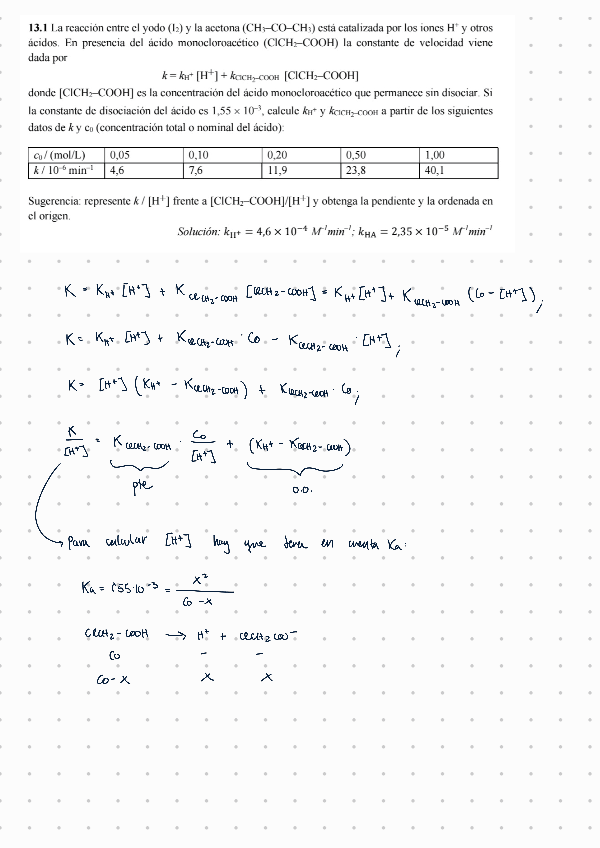 13.1 La reacción entre el yodo (I₂) y la acetona (CH₃–CO–CH₃) está catalizada por los iones H⁺ y otros
ácidos. En presencia del ácido monocloroacético (ClCH₂–COOH) la constante de velocidad viene
dada por
k = k_H⁺ [H⁺] + k_ClCH₂–COOH [ClCH₂–COOH]
donde [ClCH₂–COOH] es la concentración del ácido monocloroacético que permanece sin disociar. Si
la constante de disociación del ácido es 1,55 × 10⁻³, calcule k_H⁺ y k_ClCH₂–COOH a partir de los siguientes
datos de k y c₀ (concentración total o nominal del ácido):
c₀ / (mol/L) 0,05 0,10 0,20 0,50 1,00
k / 10⁻⁶ min⁻¹ 4,6 7,6 11,9 23,8 40,1
Sugerencia: represente k / [H⁺] frente a [ClCH₂–COOH]/[H⁺] y obtenga la pendiente y la ordenada en
el origen.
Solución: k_H⁺ = 4,6 × 10⁻⁴ M⁻¹min⁻¹; k_HA = 2,35 × 10⁻⁵ M⁻¹min⁻¹
K = K_H⁺ [H⁺] + K_ClCH₂-COOH [ClCH₂-COOH] = K_H⁺ [H⁺] + K_ClCH₂-COOH (Co - [H⁺]);
K = K_H⁺ [H⁺] + K_ClCH₂-COOH · Co - K_ClCH₂-COOH · [H⁺];
K = [H⁺] (K_H⁺ - K_ClCH₂-COOH) + K_ClCH₂-COOH · Co;
K/[H⁺] = K_ClCH₂-COOH · Co/[H⁺] + (K_H⁺ - K_ClCH₂-COOH)
pte o.o.
Para calcular [H⁺] hay que tener en cuenta Ka:
Ka = 1'55·10⁻³ = x²/(Co - x)
ClCH₂-COOH → H⁺ + ClCH₂COO⁻
Co - -
Co - x x x